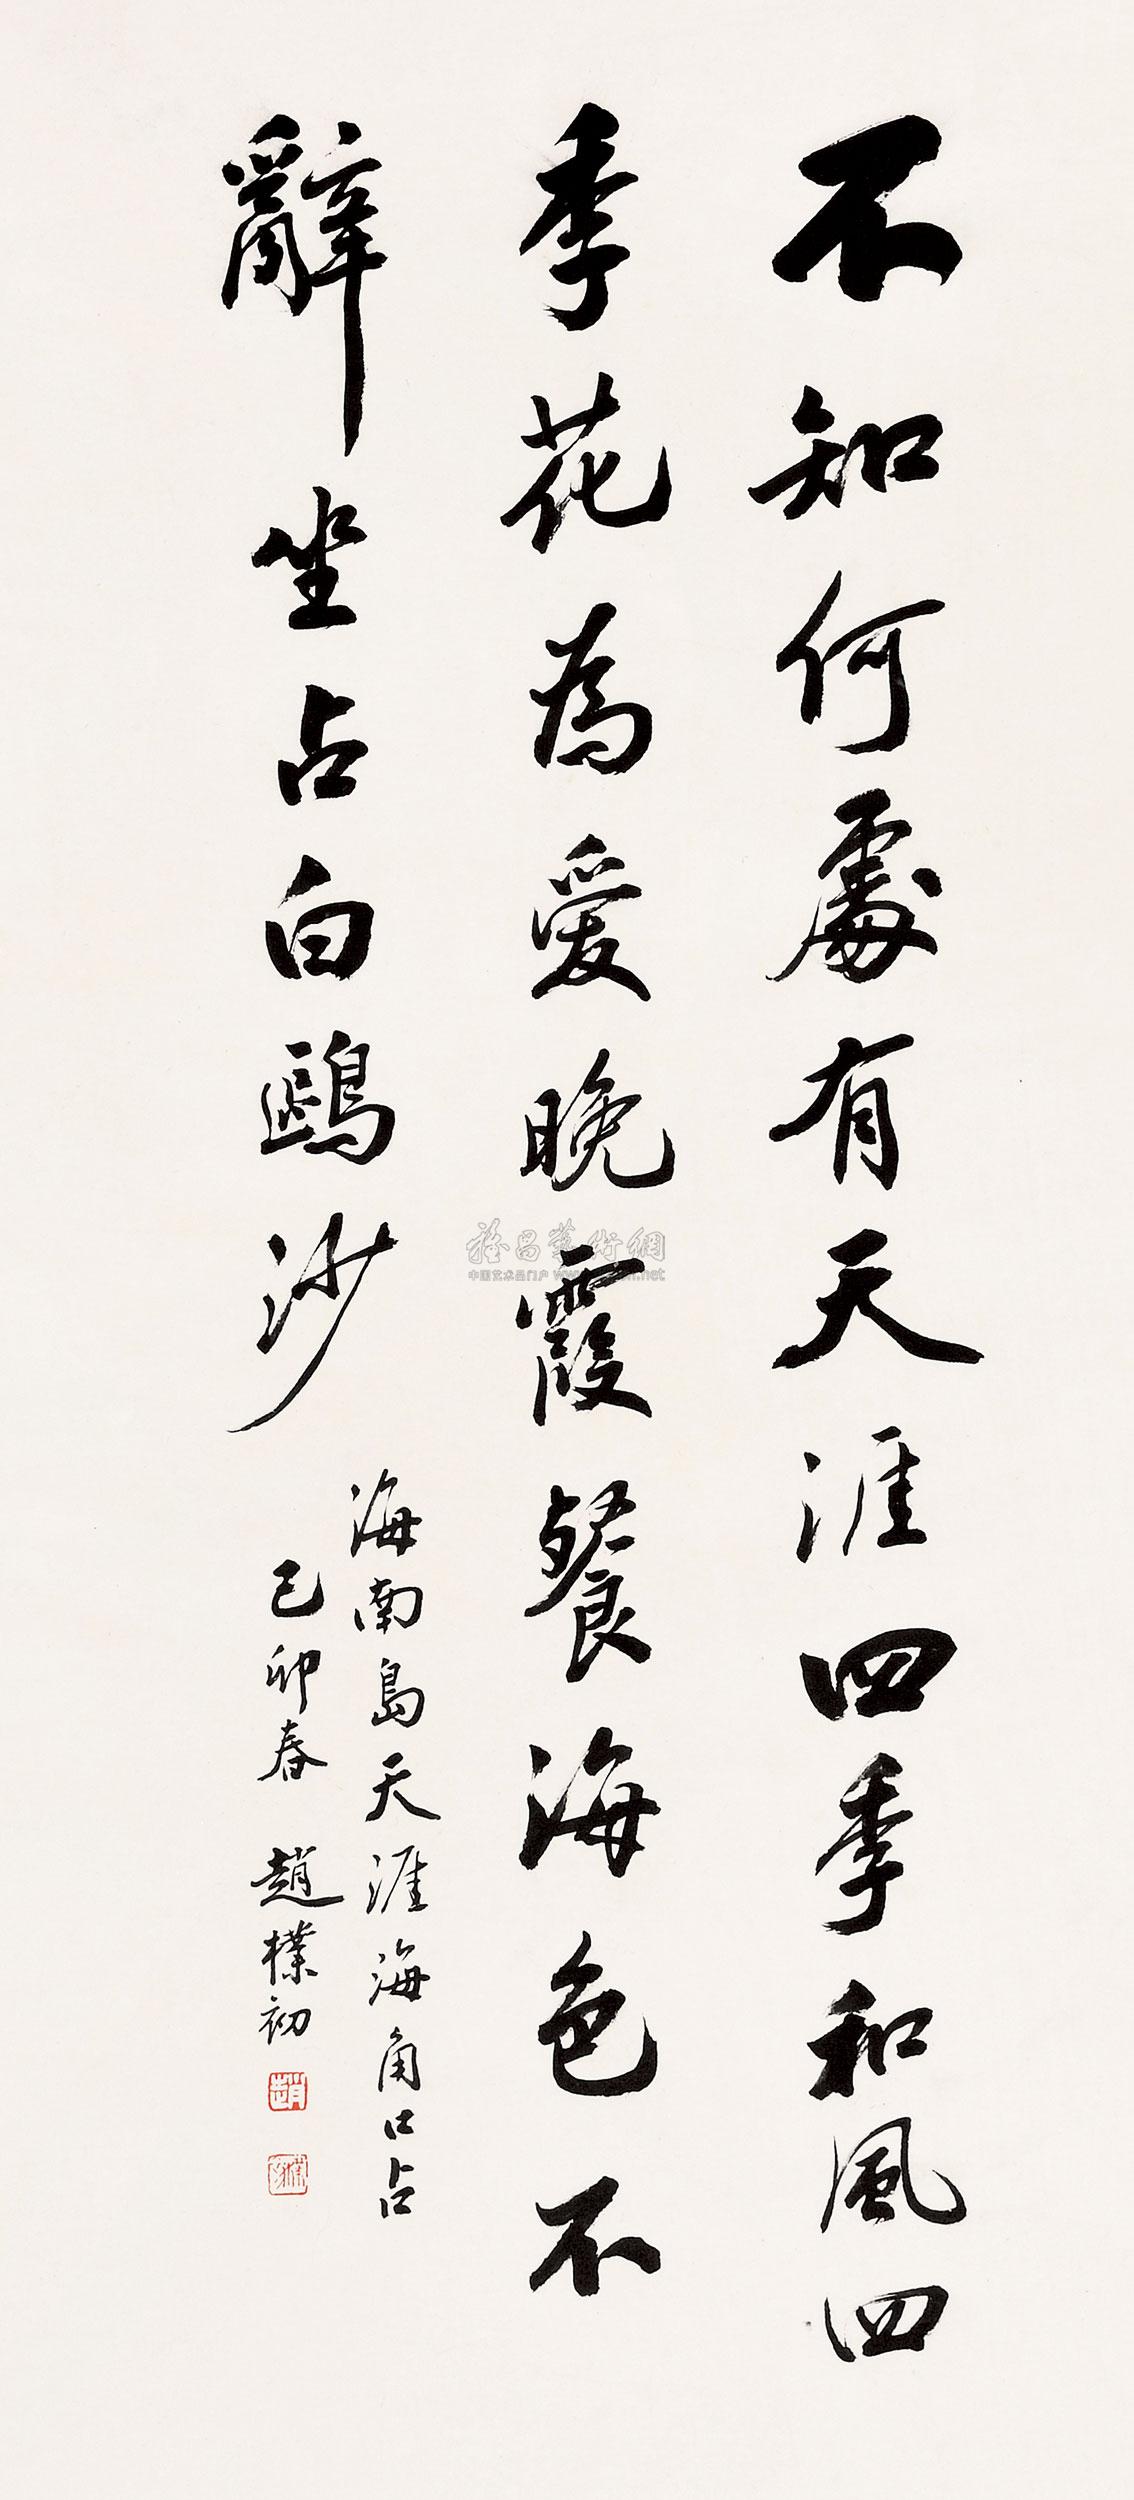 不知何處有天涯四季和風四
季花為愛晚霞餐海色不
辭坐占白鷗沙
海南島天涯海角口占
己卯春 趙樸初
趙
雅昌藝術網
中国艺术品门户